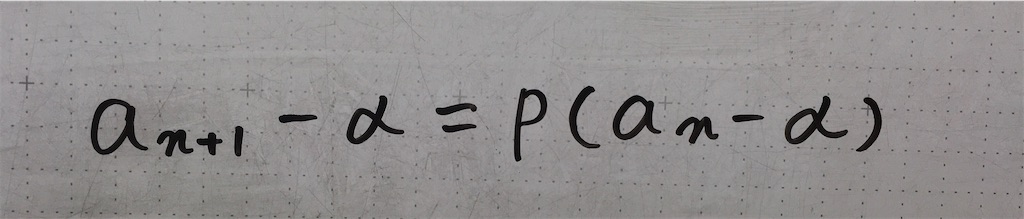 aₙ₊₁ − α = p(aₙ − α)